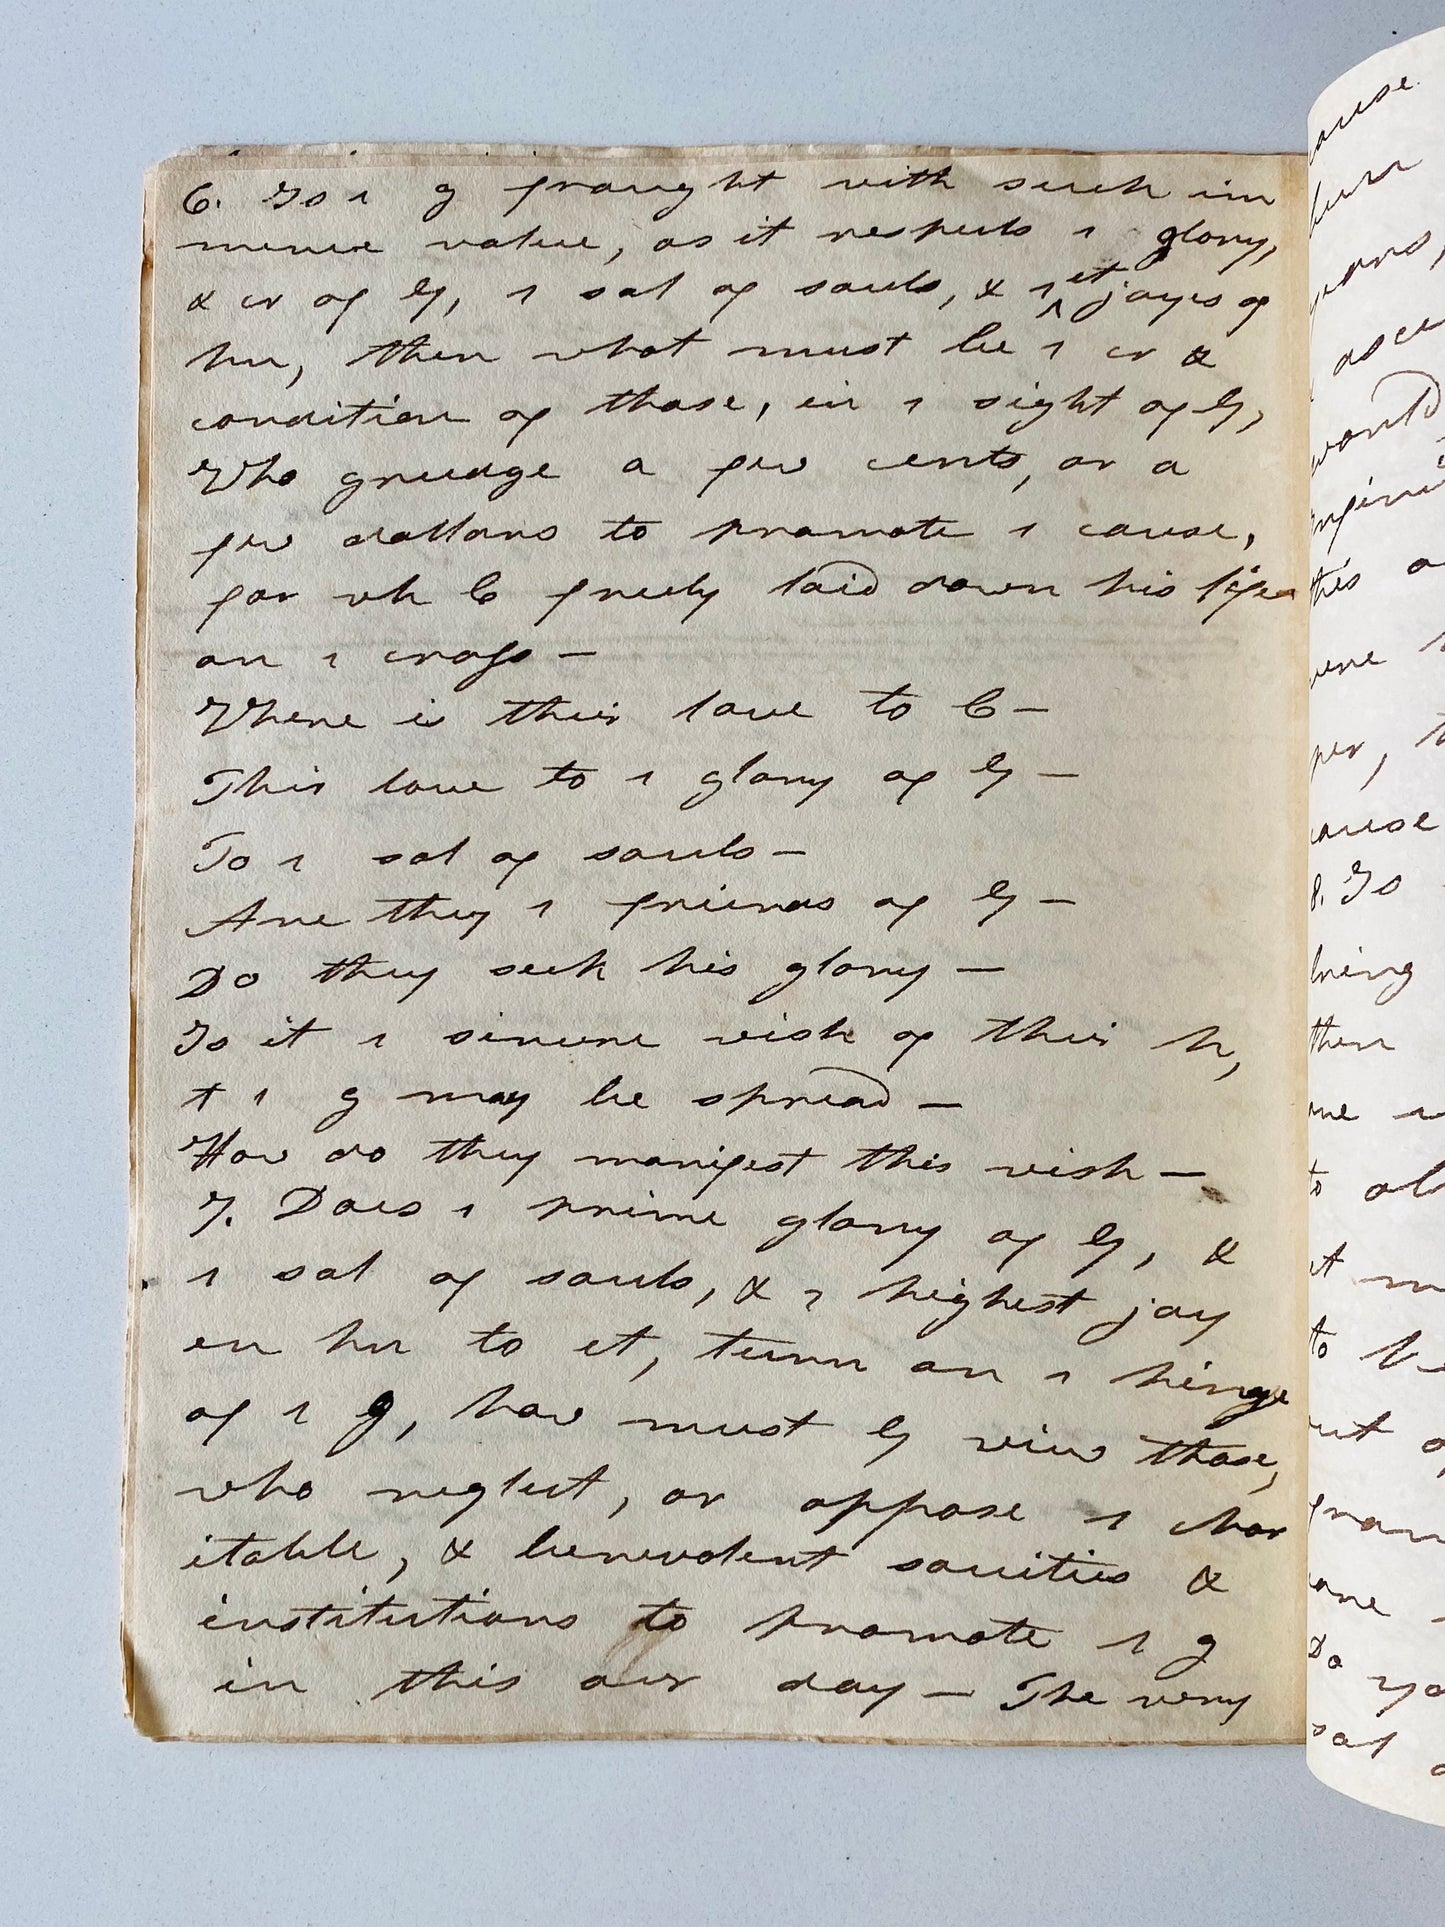 6. Is 1 g fraught with such im
mense value, as it respects 1 glory,
& cr of G, 1 sal of souls, & 1 et joyes of
hn, then what must be 1 cr &
condition of those, in 1 sight of G,
Who grudge a few cents, or a
few dollars to promote 1 cause,
for wh C freely laid down his life
on 1 cross —
Where is their love to C —
This love to 1 glory of G —
To 1 sal of souls —
Are they 1 friends of G —
Do they seek his glory —
Is it 1 sincere wish of their h,
t 1 g may be spread —
How do they manifest this wish —
7. Does 1 prime glory of G, &
1 sal of souls, & 1 highest joy
en hn to et, turn on 1 hinge
of 1 g, how must G view those,
who neglect, or oppose 1 char
itable, & benevolent societies &
institutions to promote 1 g
in this our day — The very
cause
years,
would
this
were
per,
cause
8. Is
bring
then
to
to
out
Do
sal